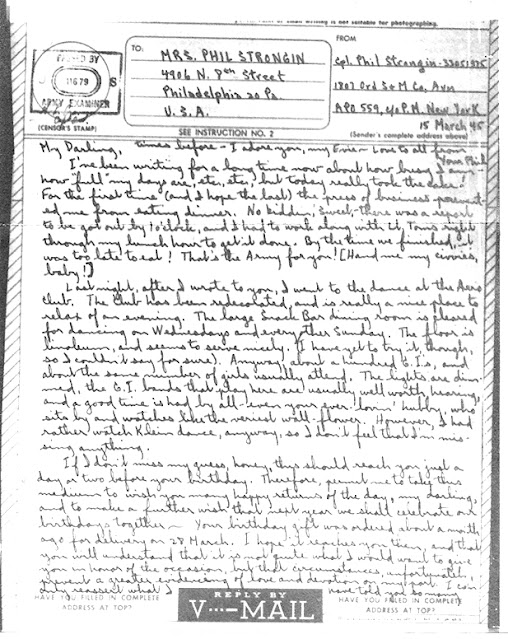 is not suitable for photographing.
PASSED BY
S
1679
ARMY EXAMINER
(CENSOR'S STAMP)
TO:
MRS. PHIL STRONGIN
4906 N. 8th Street
Philadelphia 20 Pa.
U.S.A.
SEE INSTRUCTION NO. 2
FROM
Cpl. Phil Strongin - 33051975
1807 Ord S & M Co, Avn
APO 559, % P.M. New York
15 March 45
(Sender's complete address above)
My Darling, times before - I adore you, my Evie - Love to all from
Your Phil
I've been writing for a long time now about how busy I am -
how "full" my days are, etc, etc, but today really took the cake!
For the first time (and I hope the last) the press of business prevent-
ed me from eating dinner. No kiddin', Sweet, there was a report
to be got out by 1 o'clock, and I had to work along with it, Tom's right
through my lunch hour to get it done. By the time we finished, it
was too late to eat! That's the Army for you! [Hand me my civvies,
baby!]
Last night, after I wrote to you, I went to the dance at the Aero
Club. The Club has been redecorated, and is really a nice place to
relax of an evening. The large Snack Bar dining room is cleared
for dancing on Wednesdays and every other Sunday. The floor is
linoleum, and seems to serve nicely. (I have yet to try it, though,
so I couldn't say for sure). Anyway, about a hundred G.I.s, and
about the same number of girls usually attend. The lights are dim-
med, the G.I. bands that play here are usually well worth hearing,
and a good time is had by all - even your ever-lovin' hubby, who
sits by and watches like the veriest wall-flower. However, I had
rather watch Klein dance, anyway, so I don't feel that I'm mis-
sing anything.
If I don't miss my guess, honey, this should reach you just a
day or two before your birthday. Therefore, permit me to take this
medium to wish you many happy returns of the day, my darling,
and to make a further wish that next year we shall celebrate our
birthdays together ~ Your birthday gift was ordered about a month
ago for delivery on 28 March. I hope it reaches you then, and that
you will understand that it is not quite what I would want to give
you in honor of the occasion, but that circumstances, unfortunately,
prevent a greater evidencing of love and devotion on my part. I can
only reassert what I have told you so many
HAVE YOU FILLED IN COMPLETE
ADDRESS AT TOP?
REPLY BY
V···–MAIL
HAVE YOU FILLED IN COMPLETE
ADDRESS AT TOP?